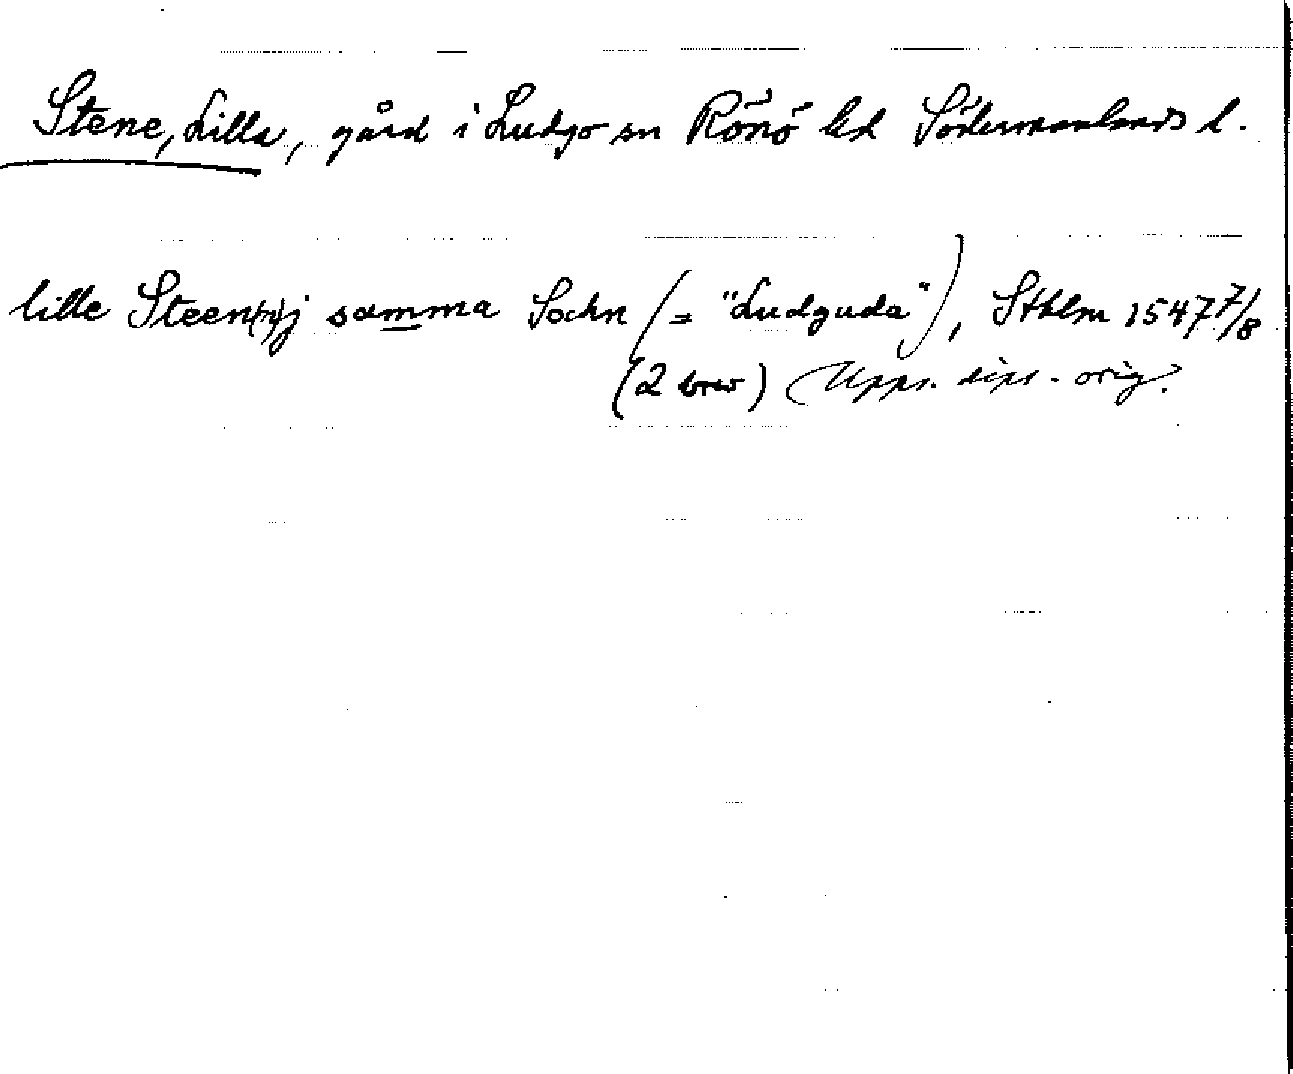 Stene, Lilla, gård i Ludgo sn Rönö hd Södermanlands l.
lille Steen(n)j samma Sochn (= "Ludguda"), Sthlm 1547 7/8
(2 brev) Upps. dipl. orig.